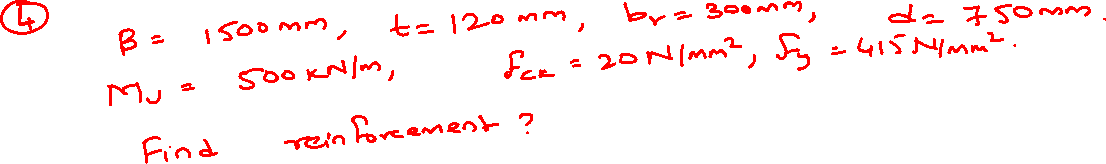 ④ B = 1500 mm, t = 120 mm, br = 300mm, d = 750mm.
Mu = 500 kN/m, fck = 20 N/mm², fy = 415 N/mm².
Find reinforcement ?